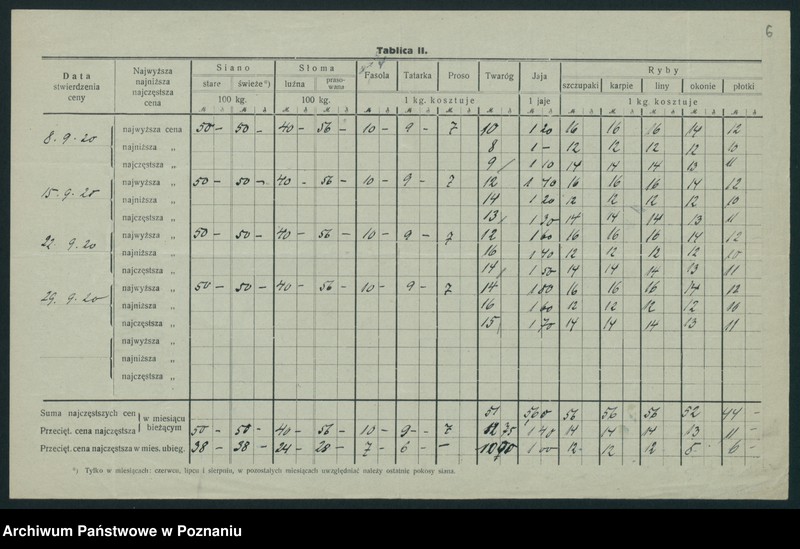 6
Tablica II.
Data stwierdzenia ceny | Najwyższa najniższa najczęstsza cena | Siano | Słoma | Fasola | Tatarka | Proso | Twaróg | Jaja | Ryby
stare | świeże*) | luźna | prasowana | szczupaki | karpie | liny | okonie | płotki
100 kg. | 100 kg. | 1 kg. kosztuje | 1 jaje | 1 kg. kosztuje
8. 9. 20 | najwyższa cena | 50 - | 50 - | 40 - | 56 - | 10 - | 9 - | 7 | 10 | 1 20 | 16 | 16 | 16 | 14 | 12
najniższa „ | 8 | 1 - | 12 | 12 | 12 | 12 | 10
najczęstsza „ | 9 | 1 10 | 14 | 14 | 14 | 13 | 11
15. 9. 20 | najwyższa „ | 50 - | 50 - | 40 - | 56 - | 10 - | 9 - | 7 | 12 | 1 40 | 16 | 16 | 16 | 14 | 12
najniższa „ | 14 | 1 20 | 12 | 12 | 12 | 12 | 10
najczęstsza „ | 13 | 1 30 | 14 | 14 | 14 | 13 | 11
22. 9. 20 | najwyższa „ | 50 - | 50 - | 40 - | 56 - | 10 - | 9 - | 7 | 12 | 1 60 | 16 | 16 | 16 | 14 | 12
najniższa „ | 16 | 1 40 | 12 | 12 | 12 | 12 | 10
najczęstsza „ | 14 | 1 50 | 14 | 14 | 14 | 13 | 11
29. 9. 20 | najwyższa „ | 50 - | 50 - | 40 - | 56 - | 10 - | 9 - | 7 | 14 | 1 80 | 16 | 16 | 16 | 14 | 12
najniższa „ | 16 | 1 60 | 12 | 12 | 12 | 12 | 10
najczęstsza „ | 15 | 1 70 | 14 | 14 | 14 | 13 | 11
najwyższa „
najniższa „
najczęstsza „
Suma najczęstszych cen | w miesiącu bieżącym | 51 | 5 60 | 56 | 56 | 56 | 52 | 44 -
Przecięt. cena najczęstsza | 50 - | 50 - | 40 - | 56 - | 10 - | 9 - | 7 | 12 75 | 1 40 | 14 | 14 | 14 | 13 | 11 -
Przecięt. cena najczęstsza w mies. ubieg. | 38 - | 38 - | 24 - | 28 - | 7 - | 6 - | - | 10 90 | 1 00 | 12 - | 12 | 12 - | 8 - | 6 -
*) Tylko w miesiącach: czerwcu, lipcu i sierpniu, w pozostałych miesiącach uwzględniać należy ostatnie pokosy siana.
Archiwum Państwowe w Poznaniu